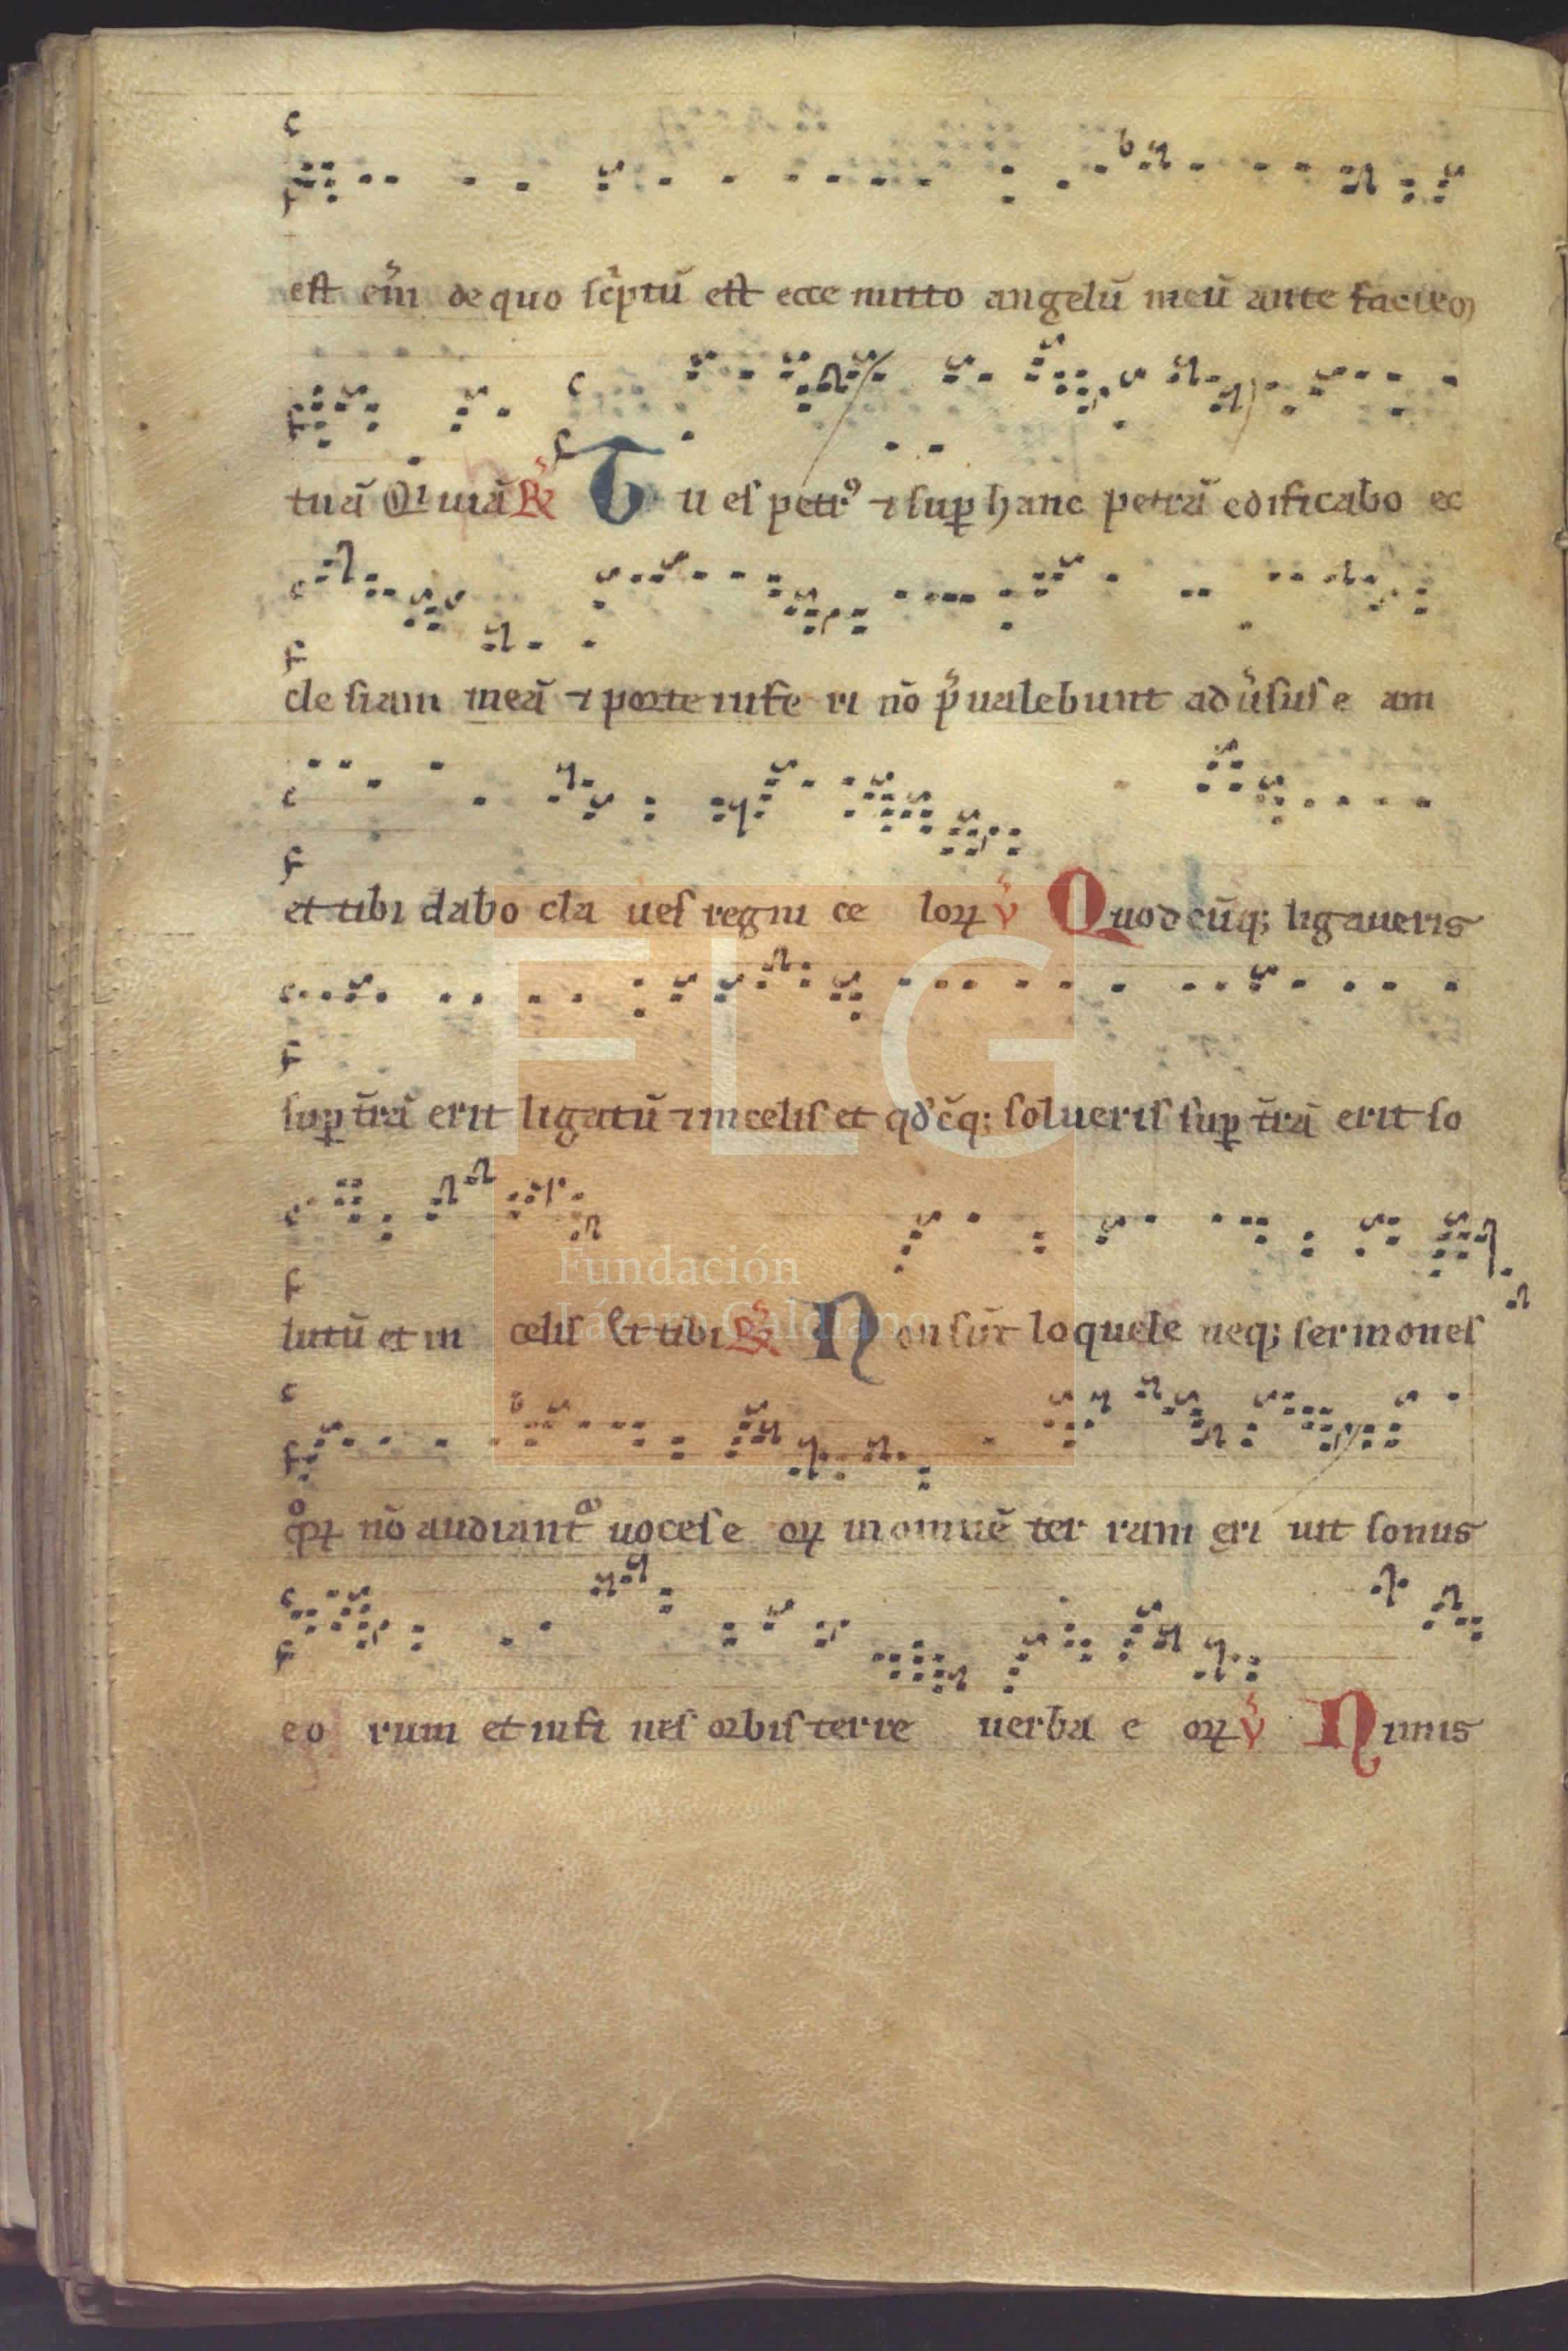 est em̄ de quo sc̔ptū est ecce mitto angelū meū ante faciem
tuā Qi uiā ℟ Tu es petrꝰ ⁊ suꝑ hanc petrā edificabo ec
clesiam meā ⁊ porte infe ri nō p̄ualebunt adūsus e am
et tibi dabo cla ues regni ce loꝝ ℣ Quodcūqꝫ ligaueris
suꝑ t̄rā erit ligatū ⁊ in celis et qd̓cūqꝫ solueris suꝑ t̄rā erit so
lutū et in celis Et tibi ℟ Non sūt loquele neqꝫ sermones
qͦꝝ nō audiantᷓ uoces e oꝝ in omnē ter ram exi uit sonus
eo rum et in fi nes orbis terre uerba e oꝝ ℣ Nimis
FLG
Fundación
Lázaro Galdiano